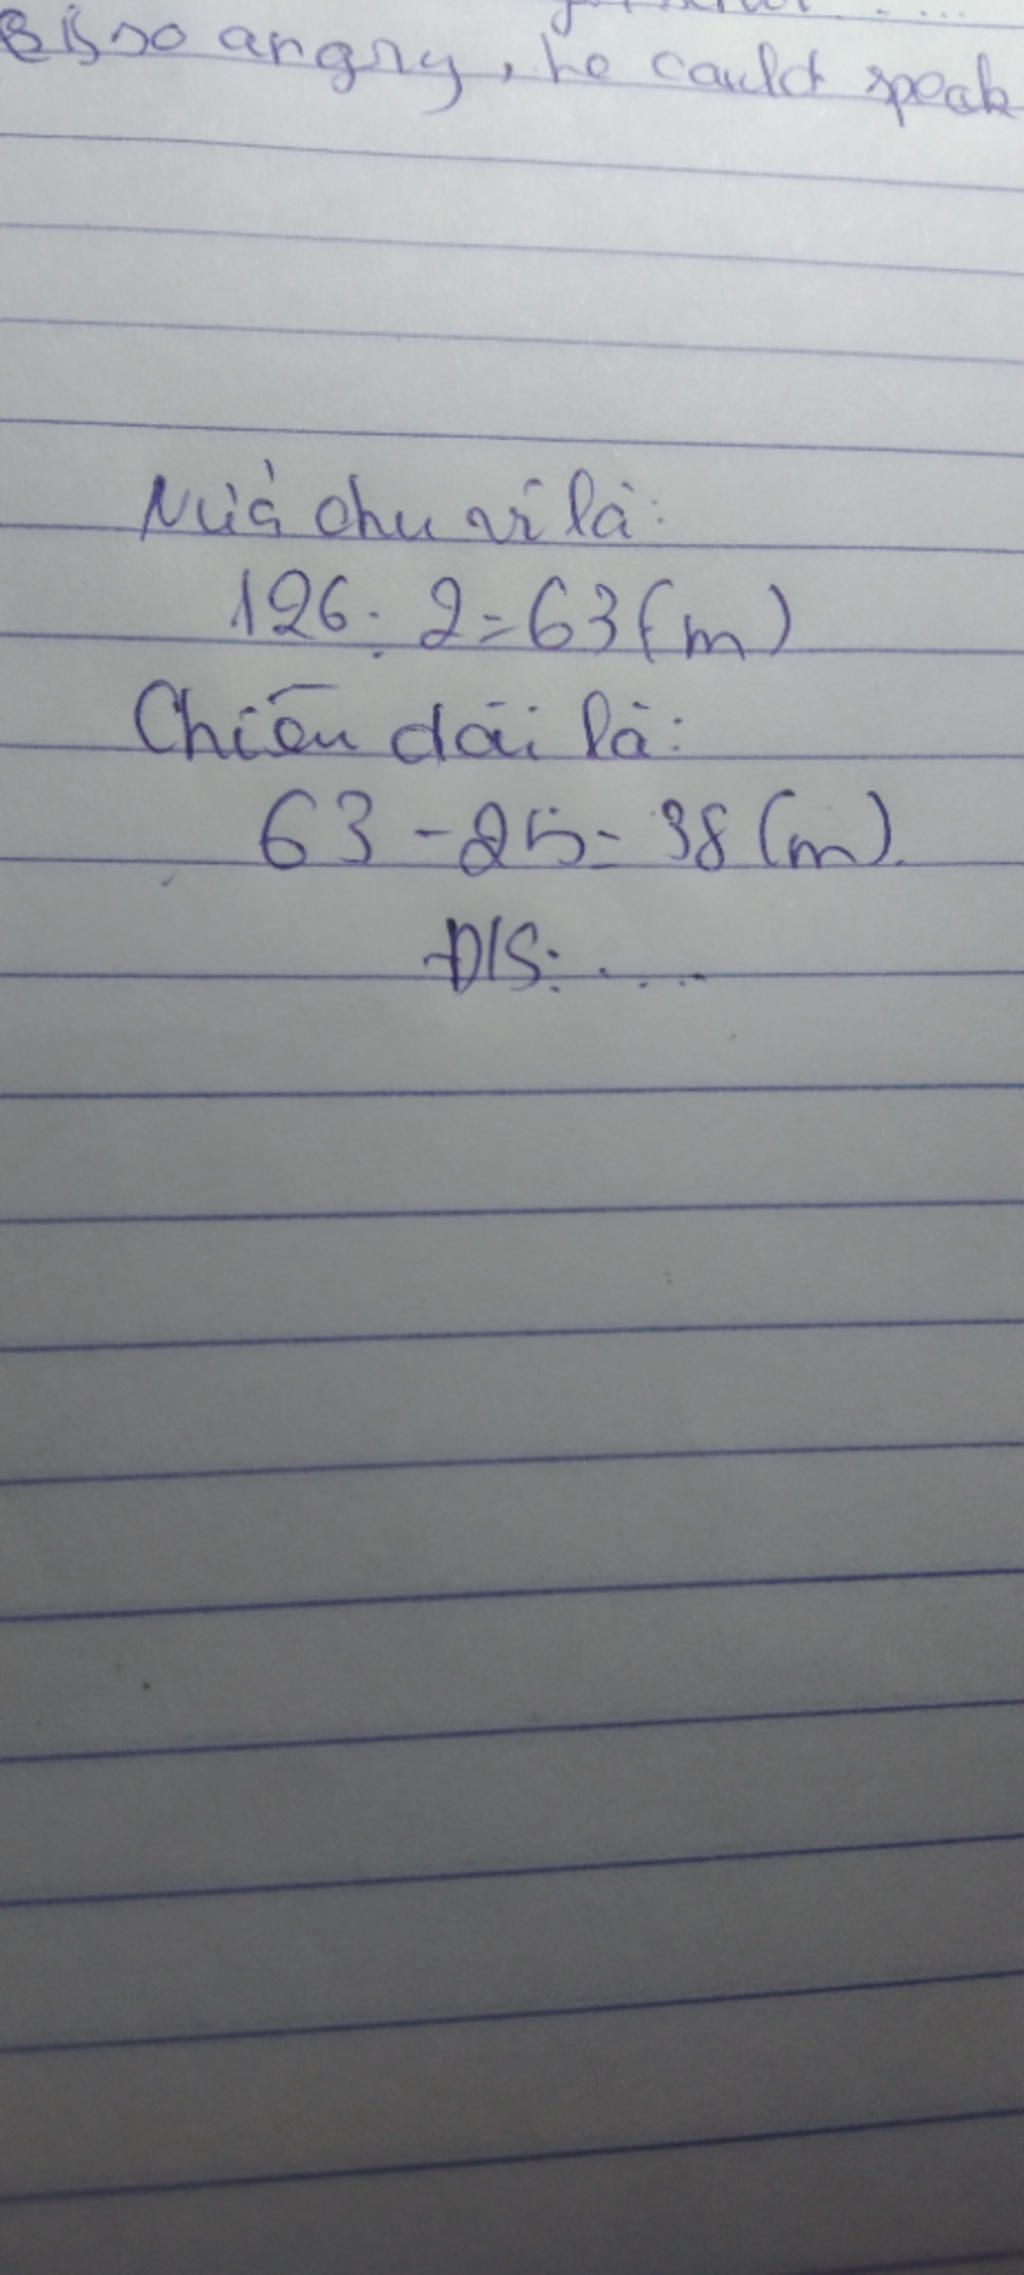 is so angry, he could speak
Nửa chu vi là:
126 : 2 = 63 (m)
Chiều dài là:
63 - 25 = 38 (m).
Đ/S: ....